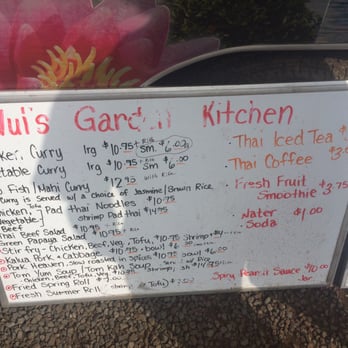 Nui's Garden Kitchen
ken Curry lrg $10.75 + RICE sm. $6.00
table Curry lrg $10.75 + Rice sm. $6.00
Fish/Mahi Curry $12.95 with Rice
Curry is served w/ a choice of Jasmine/Brown Rice
Chicken, Pad Thai Noodles $10.75
Vegetable Shrimp Pad thai $14.95
Beef
Thai Beef Salad
Green Papaya Salad
Stir Fry - Chicken, Beef, Veg, Tofu, $10.75 Shrimp
Kalua Pork + Cabbage
Pork Heaven, slow roasted in spices $10.75 bowl
Tom Yum Soup/Tom Kah Soup
Fried Spring Roll
Fresh Summer Roll Shrimp Tofu
Thai Iced Tea $
Thai Coffee $3
Fresh Fruit
Smoothie $3.75
Water $1.00
Soda
Spicy Peanut Sauce $10.00
Jar